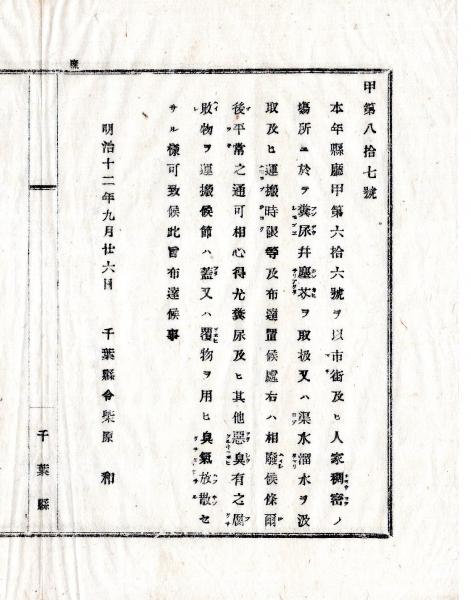 甲第八拾七號
本年縣廳甲第六拾六號ヲ以市街及ヒ人家稠密ノ
塲所ニ於テ糞尿幷塵芥ヲ取扱又ハ渠水溜水ヲ汲
取及ヒ運搬時限等及布達置候處右ハ相廢候條爾
後平常之通可相心得尤糞尿及ヒ其他惡臭有之腐
敗物ヲ運搬候節ハ蓋又ハ覆物ヲ用ヒ臭氣放散セ
サル樣可致候此旨布達候事
明治十二年九月廿六日 千葉縣令柴原 和
千葉縣